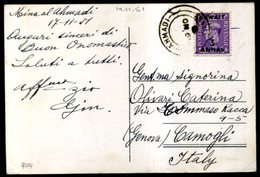 Mina al Ahmadi
17-11-51
Auguri sinceri di
Buon Onomastico
Saluti a tutti.
Aff.mo
zio
Gin
AHMADI
KUWAIT
ANNAS
Gent.ma Signorina
Olivari Caterina
Via Tommaso Racca
9-5
(Genova) Camogli
Italy